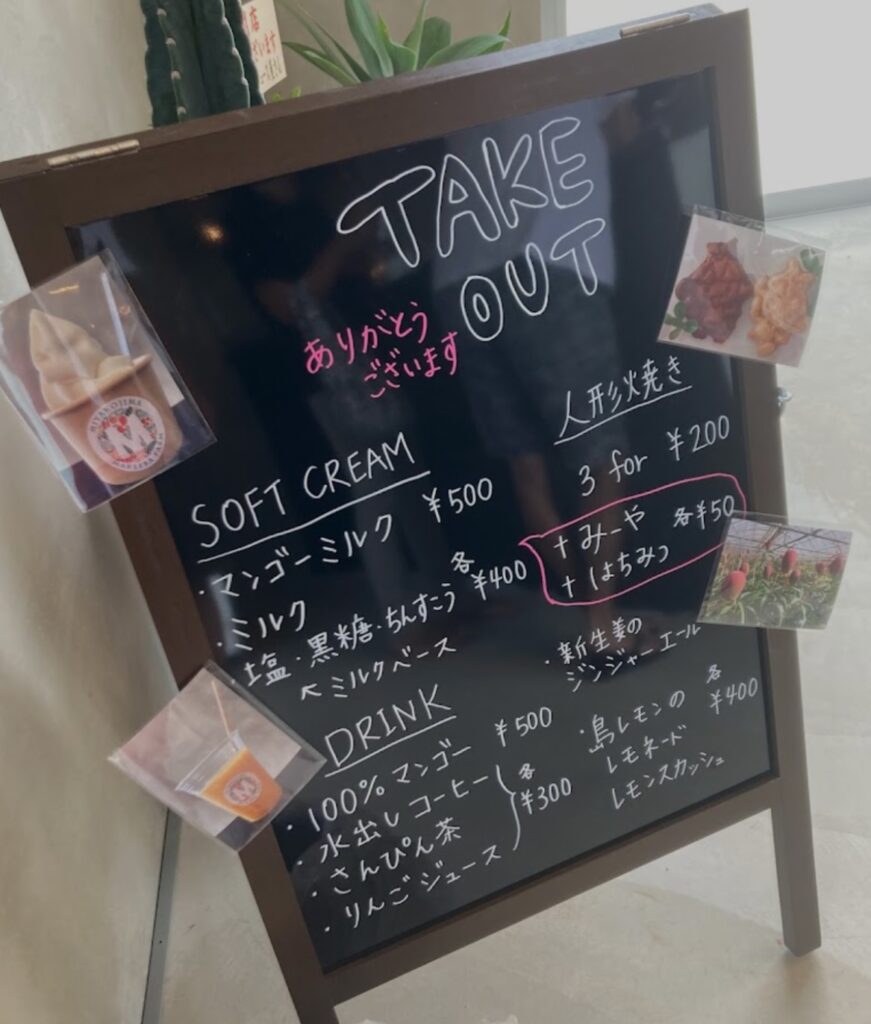 店
ざいます
TAKE
OUT
ありがとう
ございます
MIYAKOJIMA
M
SOFT CREAM
・マンゴーミルク ¥500
・ミルク 各¥400
・塩・黒糖・ちんすこう
↖ミルクベース
DRINK
・100%マンゴー ¥500
・水出しコーヒー 各¥300
・さんぴん茶
・りんごジュース
人形焼き
3 for ¥200
+みーや 各¥50
+はちみつ
・新生姜の
ジンジャーエール
・島レモンの 各¥400
レモネード
レモンスカッシュ
M